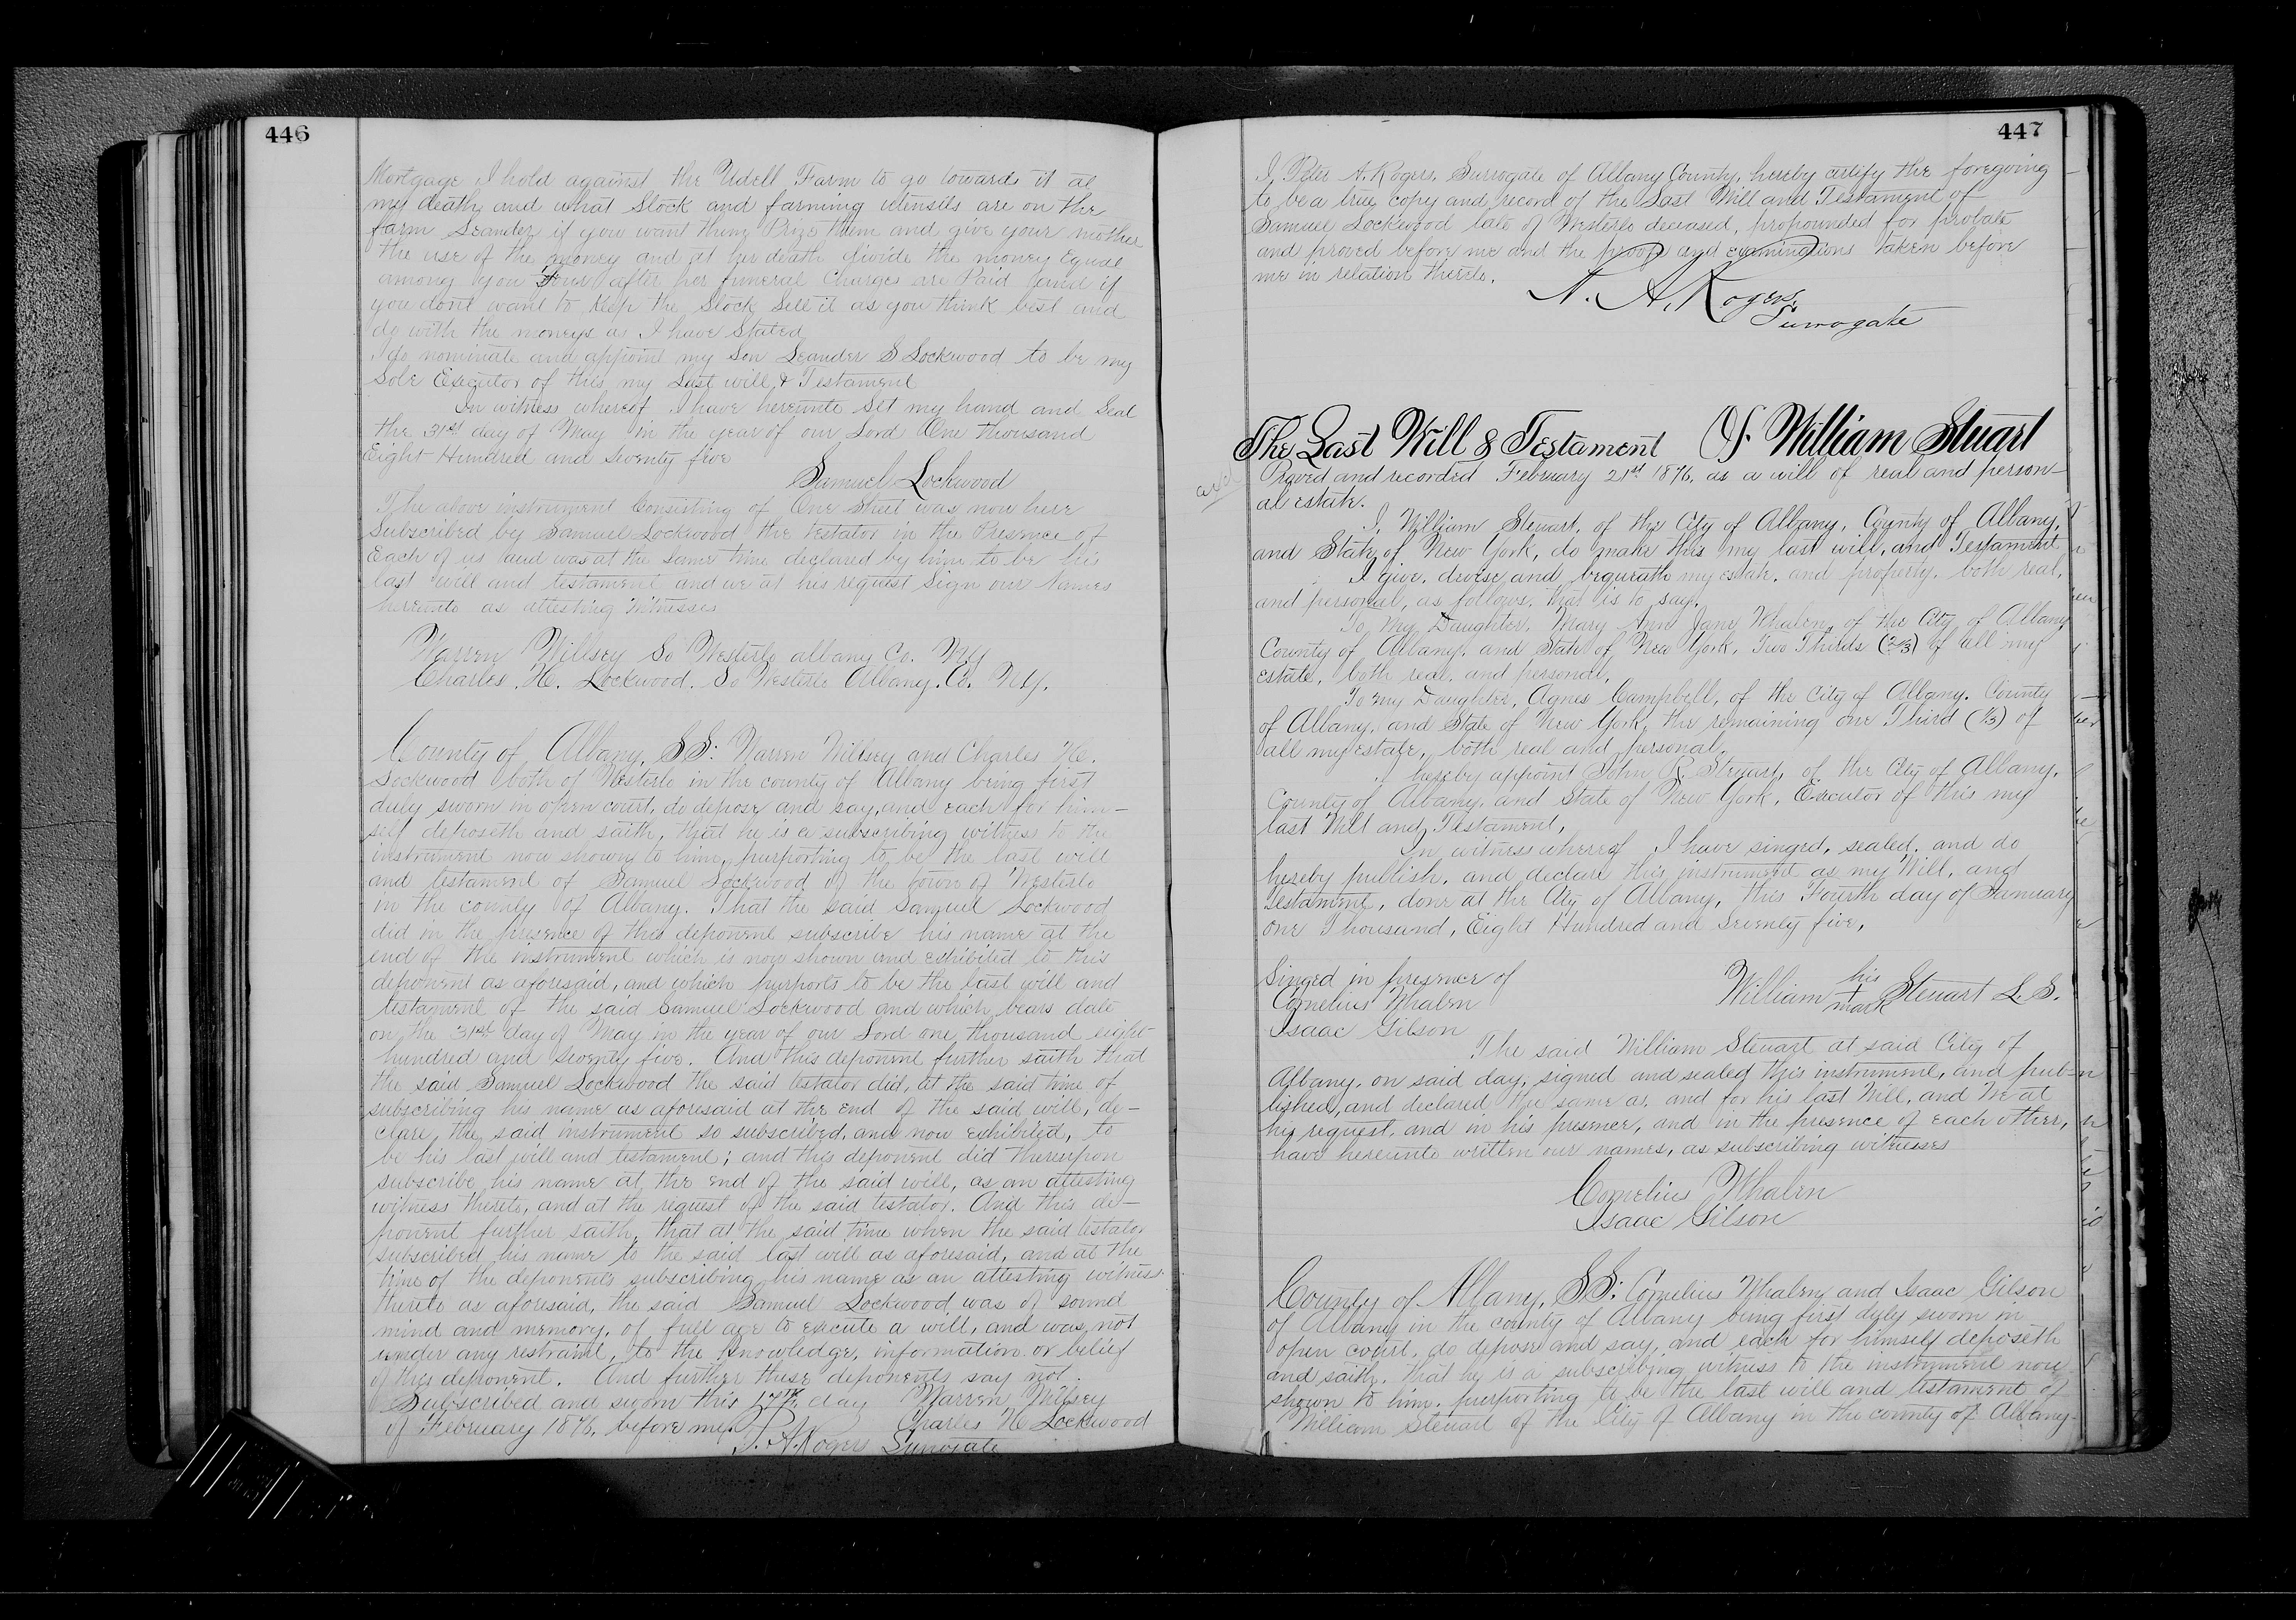 446
Mortgage I hold against the Udell Farm to go towards it at
my death, and what Stock and farming utensils are on the
farm Leander if you want them Prize them and give your mother
the use of the money and at her death divide the money Equal
among you Four after her funeral Charges are Paid and if
you dont want to keep the Stock Sell it as you think best and
do with the moneys as I have Stated
I do nominate and appoint my Son Leander S Lockwood to be my
Sole Executor of this my Last will & Testament
In witness whereof I have hereunto Set my hand and Seal
the 31st day of May in the year of our Lord One thousand
Eight Hundred and Seventy five
Samuel Lockwood
The above instrument Consisting of One Sheet was now here
Subscribed by Samuel Lockwood the testator in the Presence of
Each of us and was at the same time declared by him to be his
last will and testament and we at his request Sign our Names
hereunto as attesting Witnesses
Warren Willsey So Westerlo albany Co. NY
Charles. H. Lockwood. So Westerlo Albany. Co. NY.
County of Albany, SS: Warren Willsey and Charles H.
Lockwood both of Westerlo in the county of Albany being first
duly sworn in open court, do depose and say, and each for him-
self deposeth and saith, that he is a subscribing witness to the
instrument now shown to him, purporting to be the last will
and testament of Samuel Lockwood of the town of Westerlo
in the county of Albany. That the said Samuel Lockwood
did in the presence of this deponent subscribe his name at the
end of the instrument which is now shown and exhibited to this
deponent as aforesaid, and which purports to be the last will and
testament of the said Samuel Lockwood and which bears date
on the 31st day of May in the year of our Lord one thousand eight
hundred and seventy five. And this deponent further saith that
the said Samuel Lockwood the said testator did, at the said time of
subscribing his name as aforesaid at the end of the said will, de-
clare the said instrument so subscribed, and now exhibited, to
be his last will and testament; and this deponent did thereupon
subscribe his name at the end of the said will, as an attesting
witness thereto, and at the request of the said testator. And this de-
ponent further saith, that at the said time when the said testator
subscribed his name to the said last will as aforesaid, and at the
time of the deponents subscribing his name as an attesting witness
thereto as aforesaid, the said Samuel Lockwood was of sound
mind and memory, of full age to execute a will, and was not
under any restraint, to the knowledge, information or belief
of this deponent. And further these deponents say not.
Subscribed and sworn this 17th day Warren Willsey
of February 1876, before me, Charles H Lockwood
P. A. Rogers Surrogate
447
I, Peter A. Rogers, Surrogate of Albany County, hereby certify the foregoing
to be a true copy and record of the Last Will and Testament of
Samuel Lockwood late of Westerlo deceased, propounded for probate
and proved before me and the proofs and examinations taken before
me in relation thereto.
P. A. Rogers,
Surrogate
The Last Will & Testament Of William Stuart
Proved and recorded February 21st 1876, as a will of real and person-
al estate.
I, William Steuart, of the City of Albany, County of Albany,
and State of New York, do make this my last will, and Testament
I give, devise, and bequeath my estate, and property, both real,
and personal, as follows, that is to say,
To My Daughter, Mary Ann Jane Whalen, of the City of Albany
County of Albany, and State of New York, Two Thirds (2/3) of all my
estate, both real, and personal,
To my Daughter, Agnes Campbell, of the City of Albany. County
of Albany, and State of New York, the remaining one Third (1/3) of
all my estate, both real and personal,
I hereby appoint John R. Steuart, of the City of Albany,
County of Albany, and State of New York, Executor of this my
last Will and Testament,
In witness whereof I have singed, sealed, and do
hereby publish, and declare this instrument as my Will, and
testament, done at the City of Albany, this Fourth day of January
one Thousand, Eight Hundred and Seventy five,
Singed in presence of
Cornelius Whalen
Isaac Gilson
William his + mark Steuart L. S.
The said William Steuart at said City of
Albany, on said day, signed and sealed this instrument, and pub-
lished, and declared the same as, and for his last Will, and We at
his request, and in his presence, and in the presence of each other,
have hereunto written our names, as subscribing witnesses
Cornelius Whalen
Isaac Gilson
County of Albany, SS: Cornelius Whalen and Isaac Gilson
of Albany in the county of Albany being first duly sworn in
open court, do depose and say, and each for himself deposeth
and saith, that he is a subscribing witness to the instrument now
shown to him, purporting to be the last will and testament of
William Steuart of the City of Albany in the county of Albany-